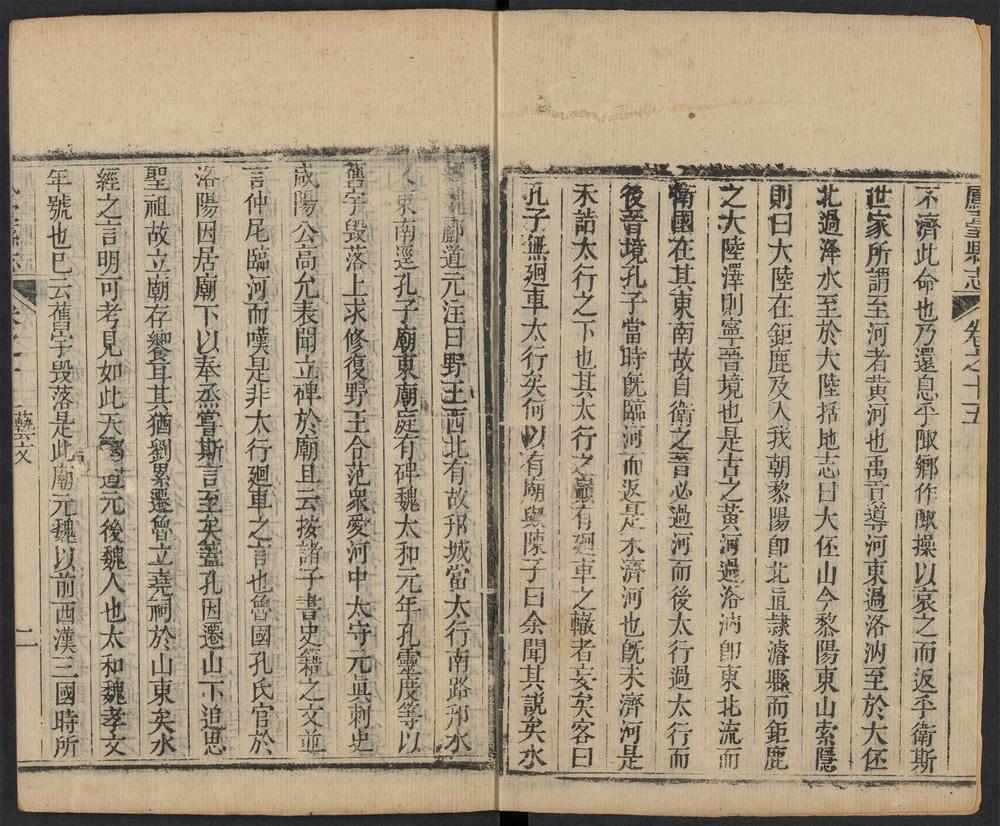 鳳臺縣志 卷之十五
不濟此命也乃還息乎陬鄉作陬操以哀之而返乎衛斯
世家所謂至河者黄河也禹貢導河東過洛汭至於大伾
北過洚水至於大陸括地志曰大伾山今黎陽東山索隱
則曰大陸在鉅鹿及入我朝黎陽卽北直隸濬縣而鉅鹿
之大陸澤則寧晉境也是古之黄河過洛汭卽東北流而
衛國在其東南故自衛之晉必過河而後太行過太行而
後晉境孔子當時旣臨河而返是未濟河也旣未濟河是
未詣太行之下也其太行之巓有廻車之轍者妄矣客曰
孔子無廻車太行矣何以有廟與陳子曰余聞其説矣水
酈道元注曰野王西北有故邘城當太行南路邘水
又東南逕孔子廟東廟庭有碑魏太和元年孔靈度等以
舊宇毀落上求修復野王令范衆愛河中太守元眞刺史
咸陽公高允表聞立碑於廟且云按諸子書史籍之文並
言仲尼臨河而嘆是非太行廻車之言也魯國孔氏官於
洛陽因居廟下以奉烝嘗斯言至矣蓋孔因遷山下追思
聖祖故立廟存饗耳其猶劉累遷魯立堯祠於山東矣水
經之言明可考見如此夫道元後魏人也太和魏孝文
年號也巳云舊宇毀落是此廟元魏以前西漢三國時所
藝文 二